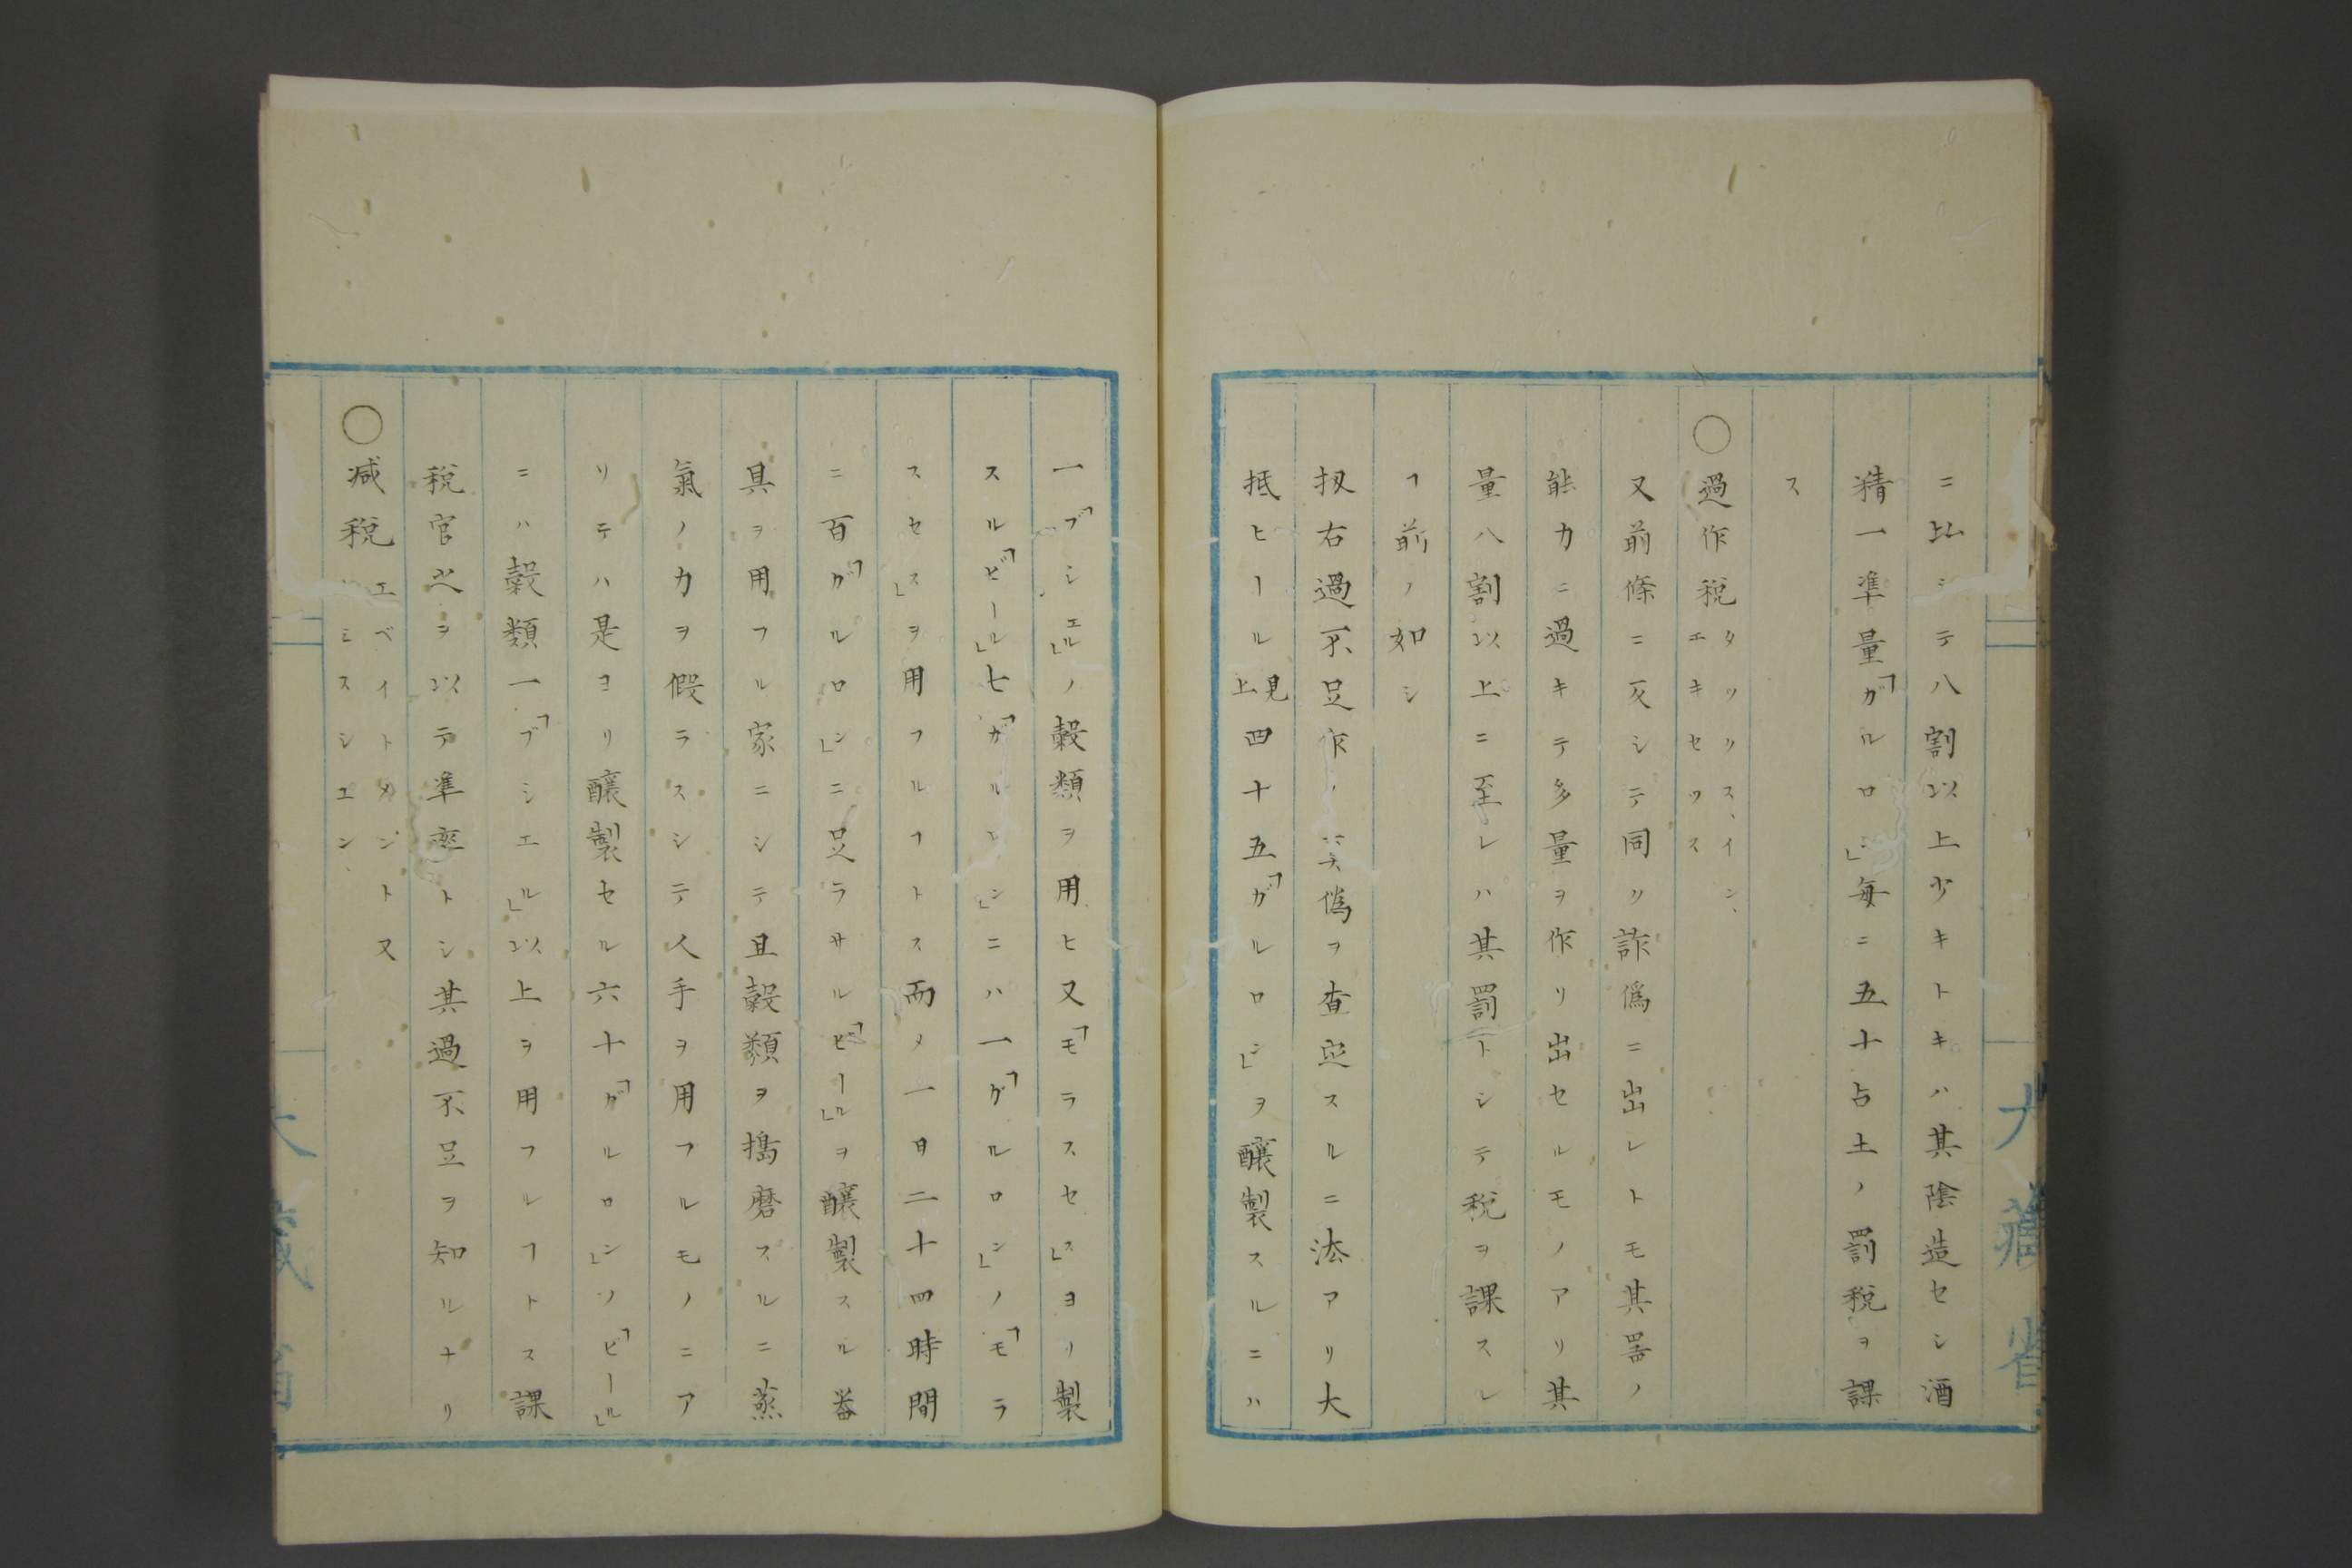 ニ比シテ八割以上少キトキハ其陰造セシ酒
精一準量「ガルロン」毎ニ五十占土ノ罰税ヲ課
ス
○過作税タツクス、イン、エキセツス
又前條ニ反シテ同ク詐偽ニ出レトモ其器ノ
能力ニ過キテ多量ヲ作リ出セルモノアリ其
量八割以上ニ至レハ其罰トシテ税ヲ課スル
ヿ前ノ如シ
扨右過不足作ノ 偽ヲ査定スルニ法アリ大
抵ヒール見上四十五「ガルロン」ヲ醸製スルニハ
一「ブシエル」ノ穀類ヲ用ヒ又「モラスセス」ヨリ製
スル「ビール」七「ガルロン」ニハ一「ガルロン」ノ「モラ
スセス」ヲ用フルヿトス而メ一日二十四時間
ニ百「ガルロン」ニ足ラサル「ビール」ヲ醸製スル器
具ヲ用フル家ニシテ且穀類ヲ搗磨スルニ蒸
氣ノ力ヲ假ラスシテ人手ヲ用フルモノニア
リテハ是ヨリ醸製セル六十「ガルロン」ノ「ビール」
ニハ穀類一「ブシエル」以上ヲ用フルヿトス課
税官之ヲ以テ準率トシ其過不足ヲ知ルナリ
○減税エベイトメント又ミスシエン
大藏省